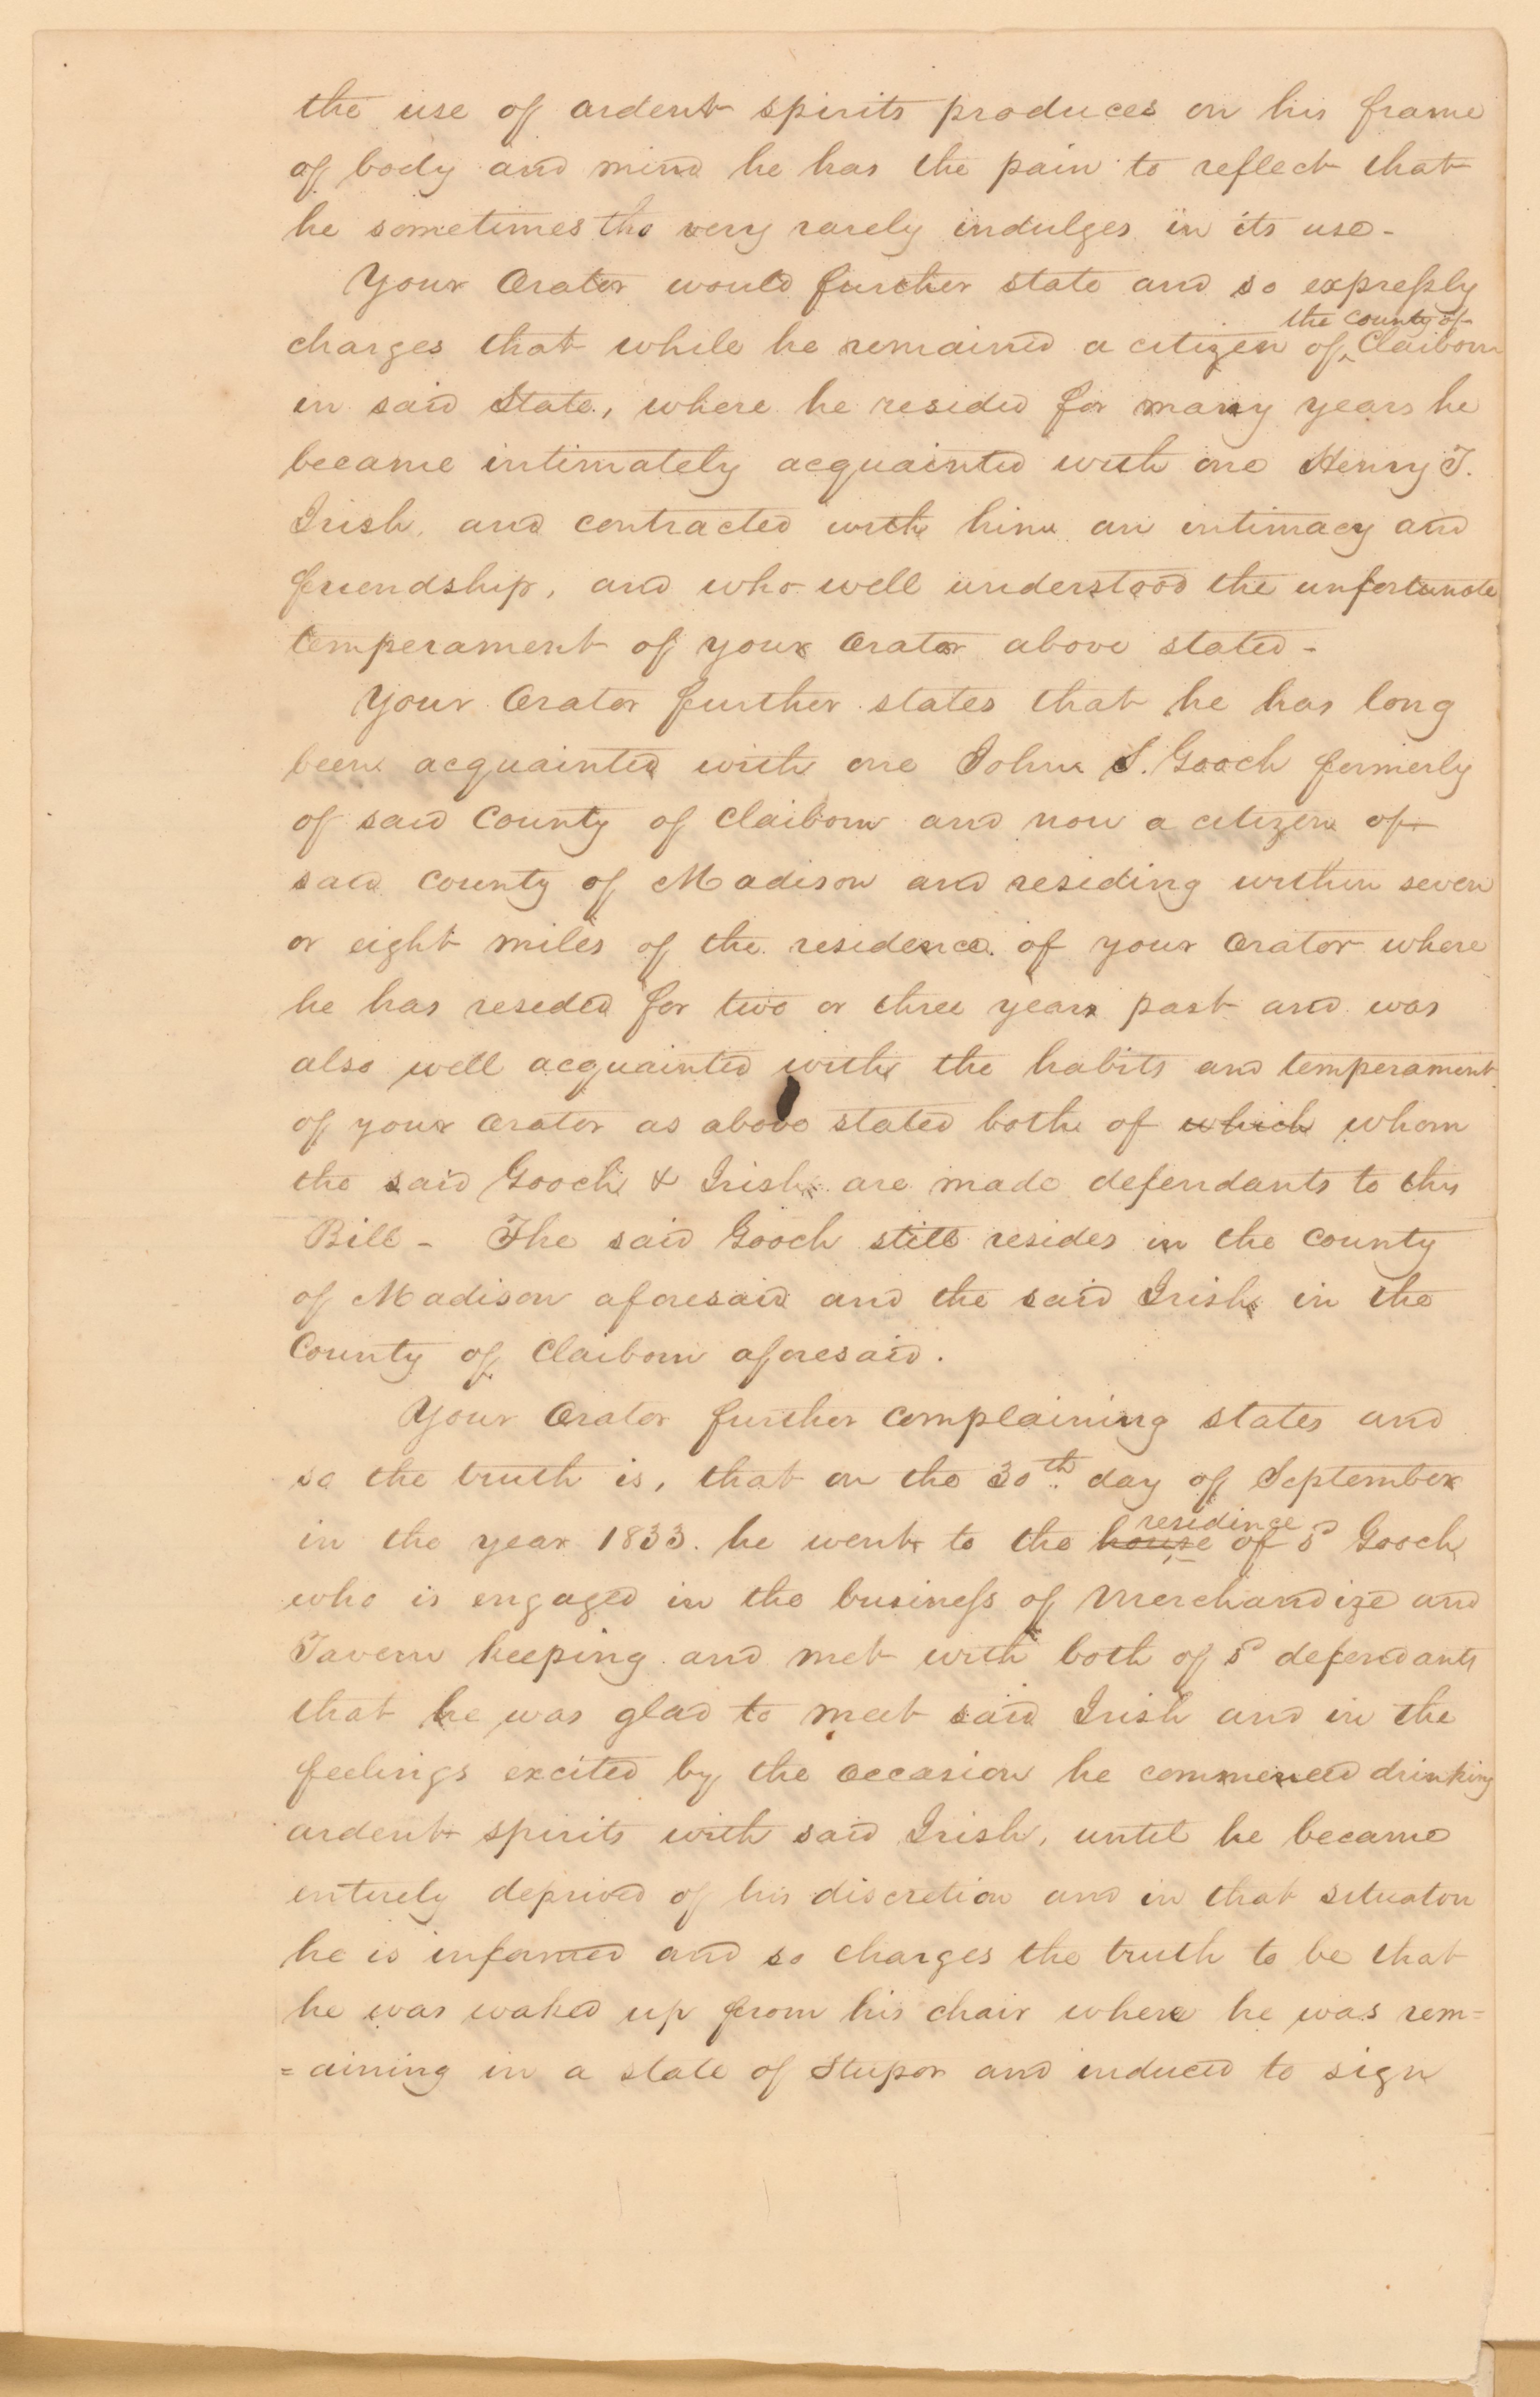 the use of ardent spirits produces on his frame
of body and mind he has the pain to reflect that
he sometimes tho very rarely indulges in its use -
Your Orator would further state and so expressly
the county of
charges that while he remained a citizen of ^ Claiborn
in said State, where he resided for many years he
became intimately acquainted with one Henry T.
Irish, and contracted with him an intimacy and
friendship, and who well understood the unfortunate
temperament of your Orator above stated -
Your Orator further states that he has long
been acquainted with one John S. Gooch formerly
of said County of Claiborn and now a citizen of
said County of Madison and residing within seven
or eight miles of the residence of your Orator where
he has resided for two or three years past and was
also well acquainted with the habits and temperament
of your Orator as above stated both of which whom
the said Gooch & Irish are made defendants to this
Bill - The said Gooch still resides in the County
of Madison aforesaid and the said Irish in the
County of Claiborn aforesaid.
Your Orator further complaining states and
so the truth is, that on the 30th day of September
residince
in the year 1833. he went to the house of sd Gooch
who is engaged in the business of Merchandize and
Tavern keeping and met with both of sd defendants
that he was glad to meet said Irish and in the
feelings excited by the occasion he commenced drinking
ardent spirits with said Irish, until he became
entirely deprived of his discretion and in that situaton
he is informed and so charges the truth to be that
he was waked up from his chair where he was rem=
=aining in a state of Stupor and induced to sign